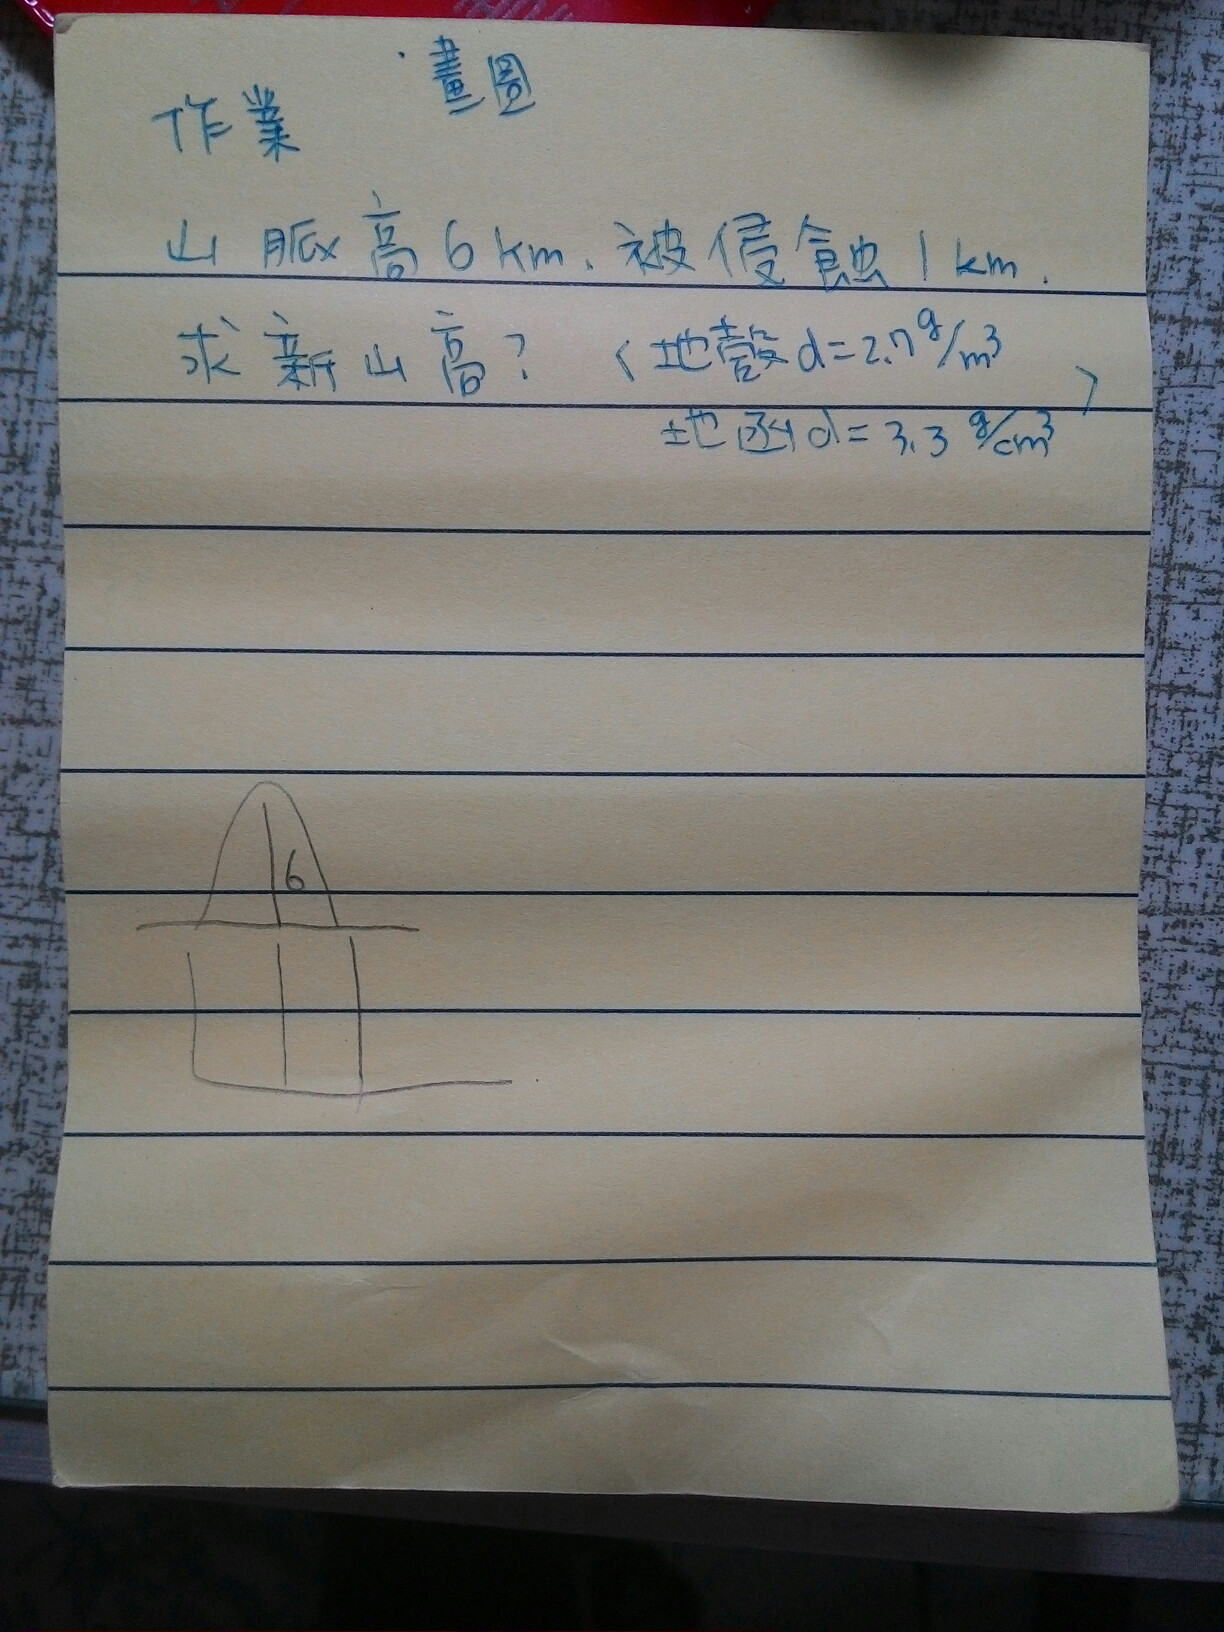 畫圖
作業
山脈高6km.被侵蝕1km.
求新山高? (地殼d=2.7g/m³
地函d=3.3 g/cm³)
6